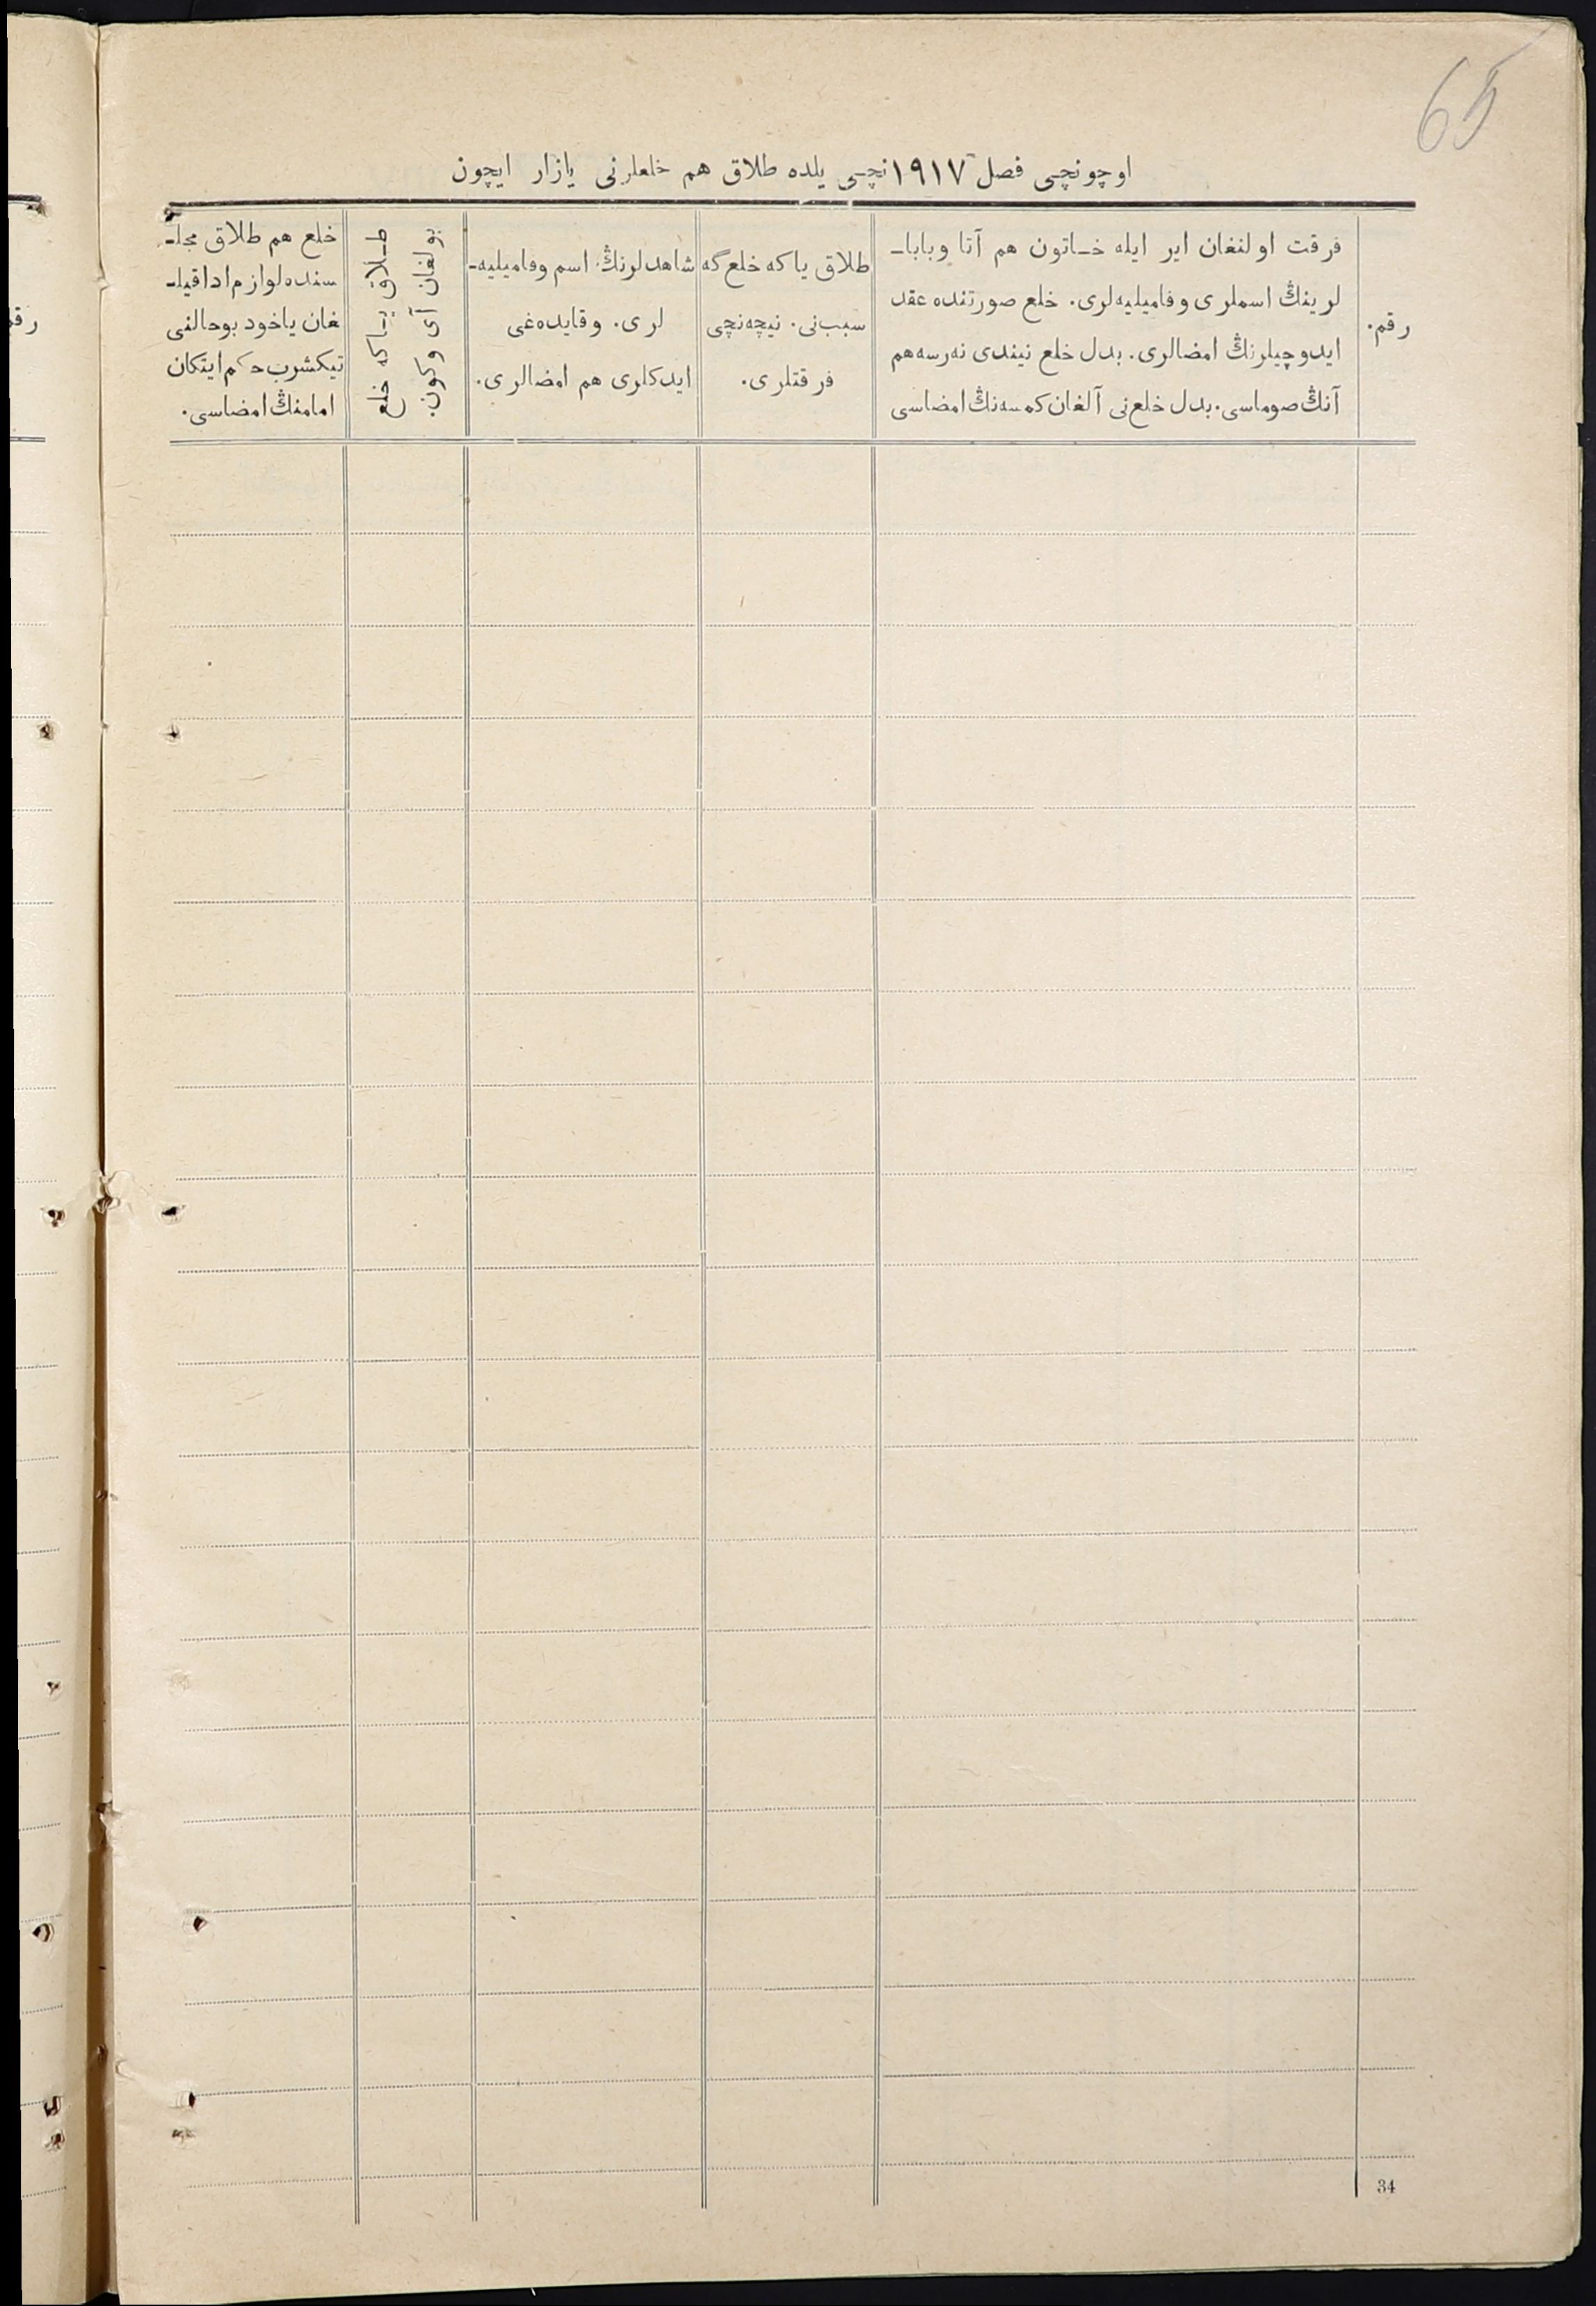 65
اوچونچی فصل ١٩١٧نچی یلده طلاق هم خلعلرنی یازار ایچون
رقم.
فرقت اولنغان ایر ایله خـاتون هم آتا وبابا-
لرینڭ اسملری وفامیلیه‌لری. خلع صورتنده عقد
ایدوچیلرنڭ امضالری. بدل خلع نیندی نه‌رسه‌هم
آنڭ صوماسی. بدل خلع‌نی آلغان کمسه‌نڭ امضاسی
طلاق یاکه خلع‌گه
سبب‌نی. نیچه‌نچی
فرقتلری.
شاهدلرنڭ اسم وفامیلیه-
لری. وقایده‌غی
ایدکلری هم امضالری.
طـلاق یـاکه خلع
بولغان آی وکون.
خلع هم طلاق مجلـ
سنده‌لوازم اداقیلـ
غان یاخود بوحالنی
تیکشرب حکم ایتکان
امامنڭ امضاسی.
34